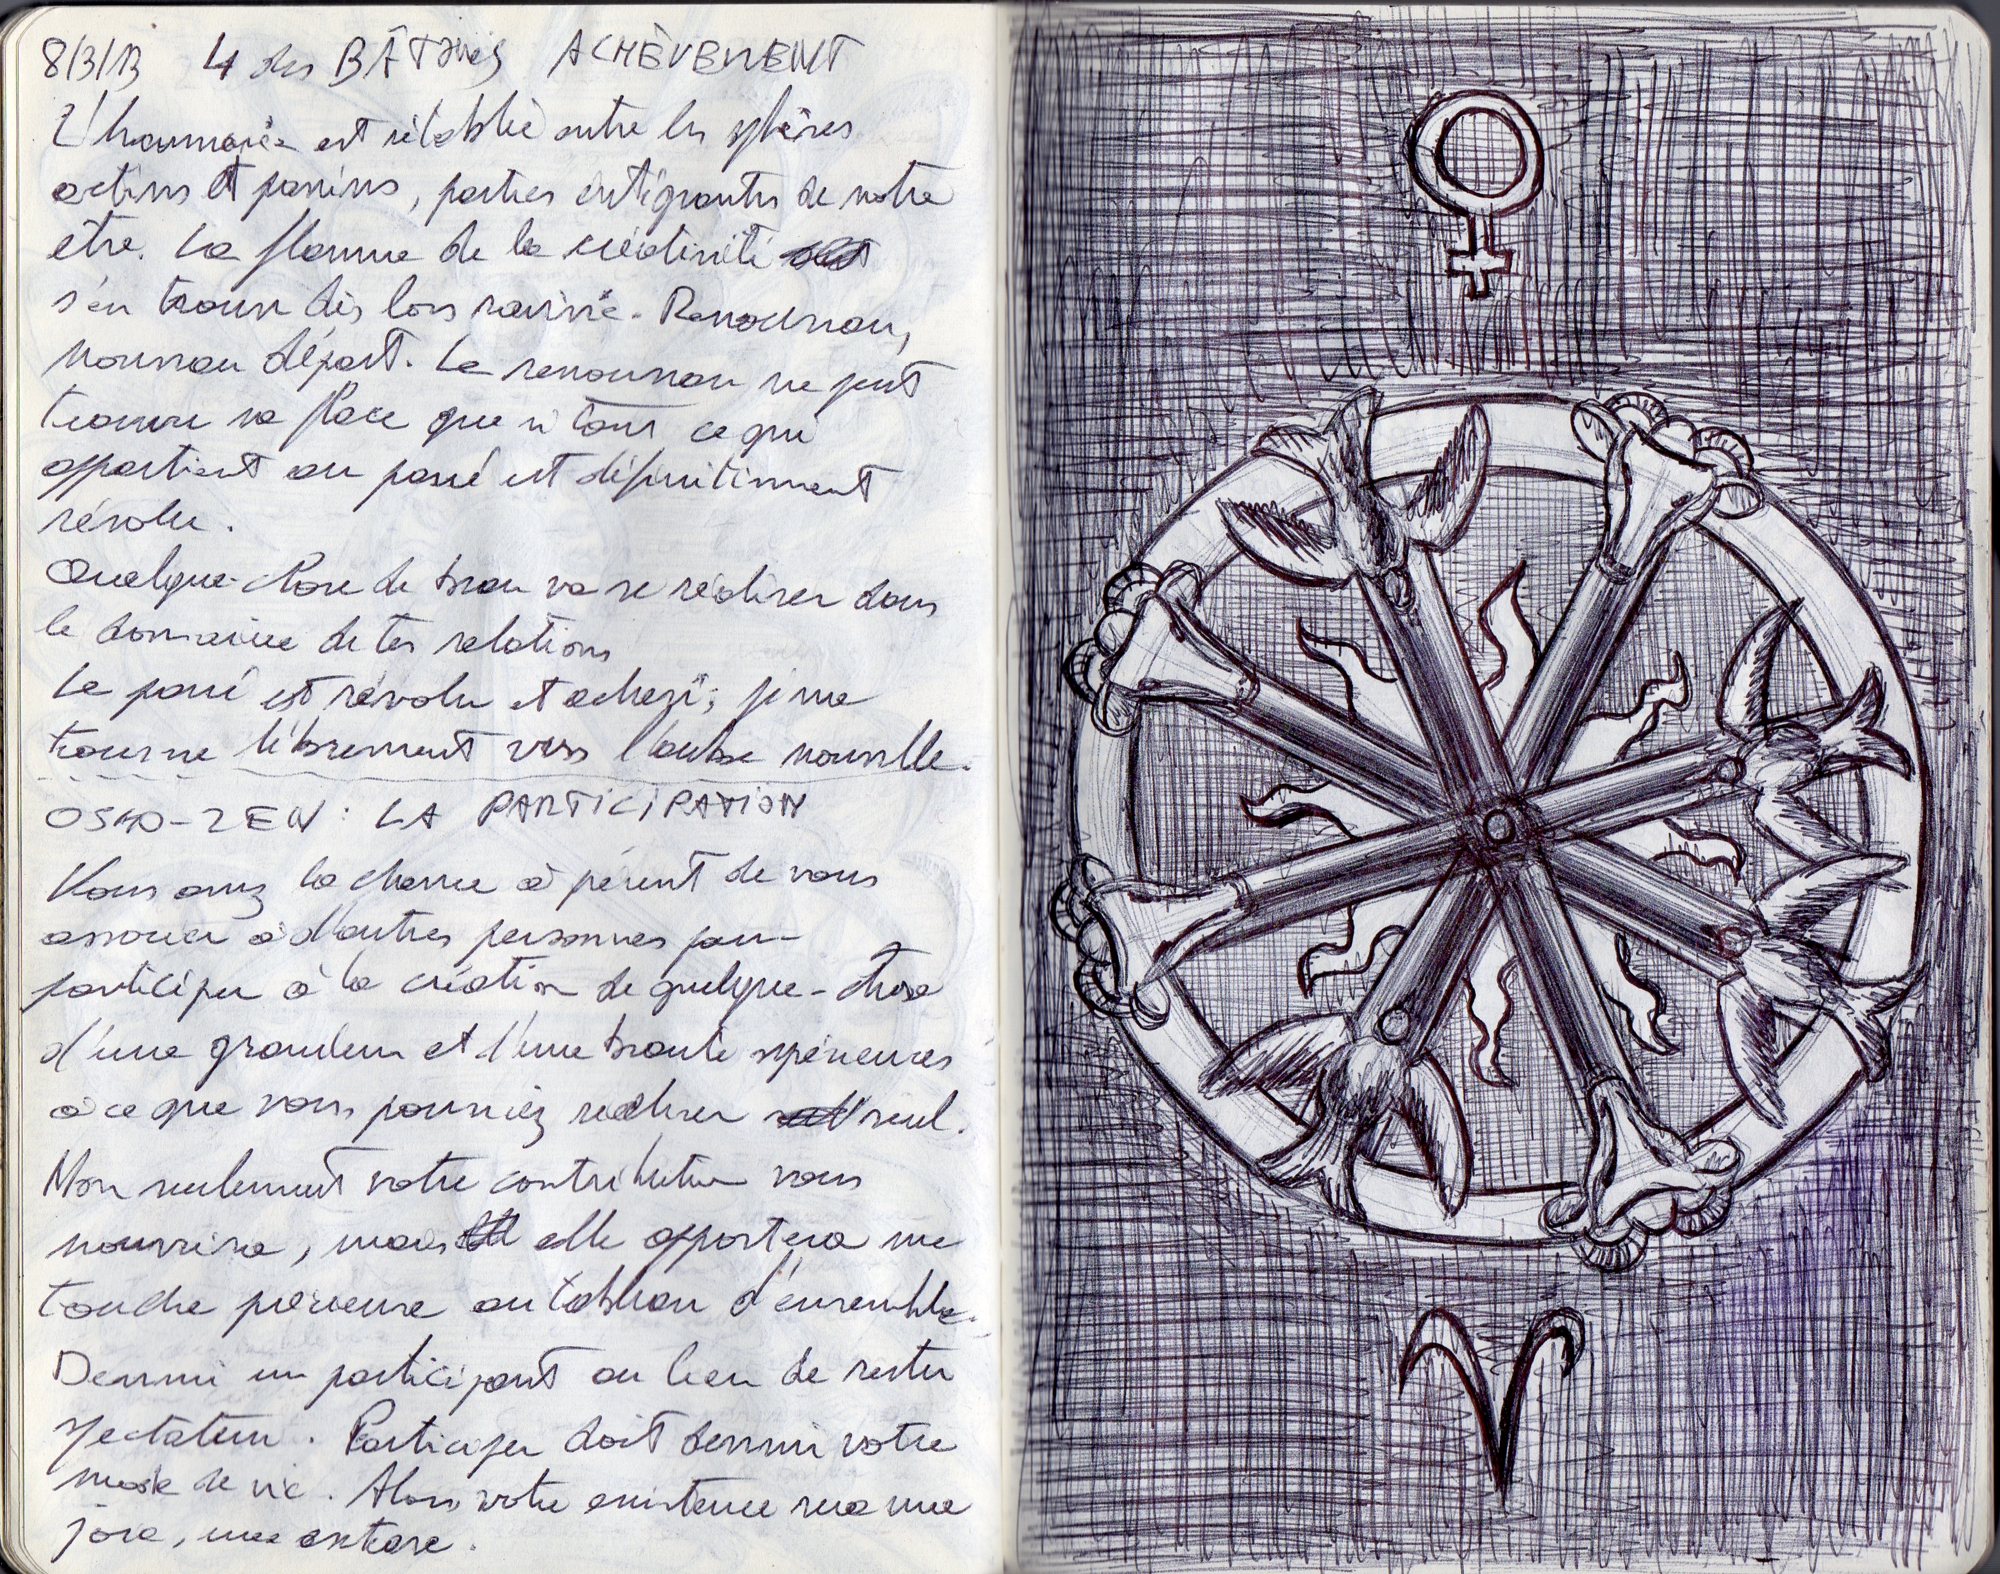 8/3/13 4 des BÂTONS ACHÈVEMENT
L'harmonie est rétablie entre les sphères
actives et passives, parties intégrantes de notre
être. La flamme de la créativité
s'en trouve dès lors ravivée. Renouveau,
nouveau départ. Le renouveau ne peut
trouver sa place que si tout ce qui
appartient au passé est définitivement
révolu.
Quelque-chose de beau va se réaliser dans
le domaine de tes relations
Le passé est révolu et achevé; je me
tourne librement vers l'aube nouvelle.
OSHO-ZEN : LA PARTICIPATION
Vous avez la chance à présent de vous
associer à d'autres personnes pour
participer à la création de quelque-chose
d'une grandeur et d'une beauté supérieures
à ce que vous pourriez réaliser seul.
Non seulement votre contribution vous
nourrira, mais elle apportera une
touche précieuse au tableau d'ensemble.
Devenir un participant au lieu de rester
spectateur. Participer doit devenir votre
mode de vie. Alors votre existence sera une
joie, une extase.